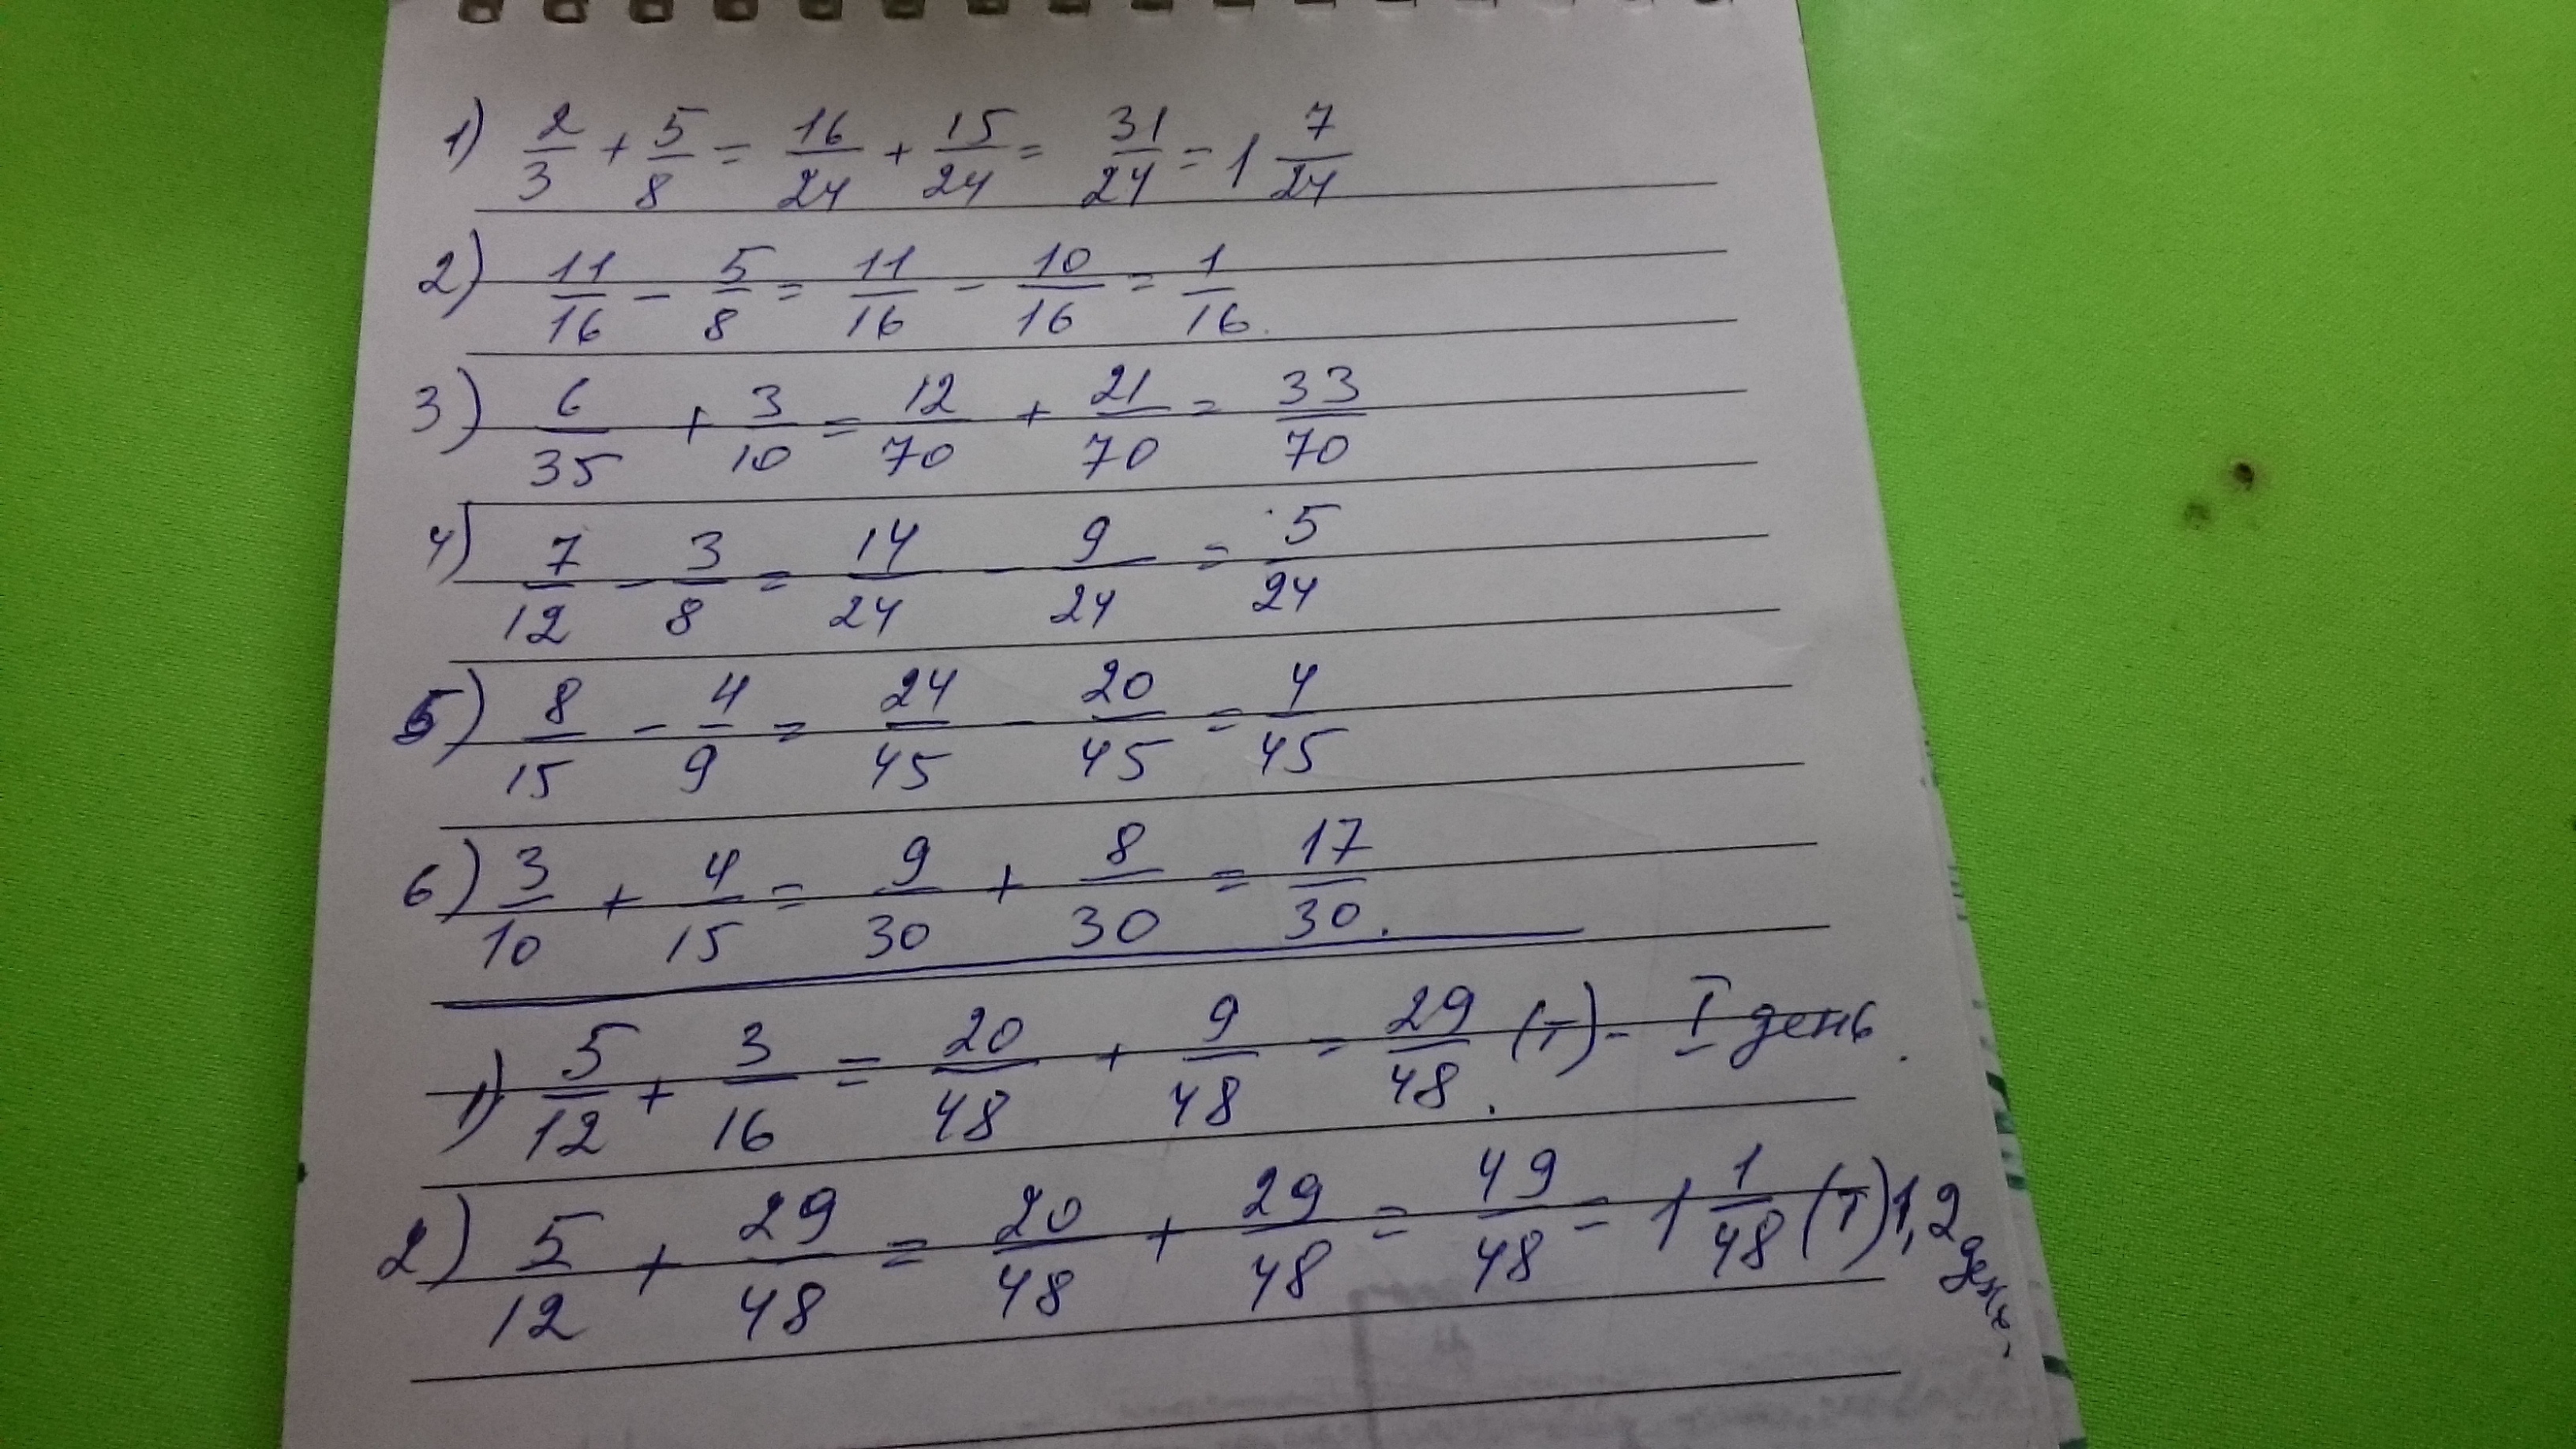 1) 2/3 + 5/8 = 16/24 + 15/24 = 31/24 = 1 7/24
2) 11/16 - 5/8 = 11/16 - 10/16 = 1/16.
3) 6/35 + 3/10 = 12/70 + 21/70 = 33/70
4) 7/12 - 3/8 = 14/24 - 9/24 = 5/24
5) 8/15 - 4/9 = 24/45 - 20/45 = 4/45
6) 3/10 + 4/15 = 9/30 + 8/30 = 17/30.
1) 5/12 + 3/16 = 20/48 + 9/48 = 29/48 (т) - I день.
2) 5/12 + 29/48 = 20/48 + 29/48 = 49/48 = 1 1/48 (т) 1,2